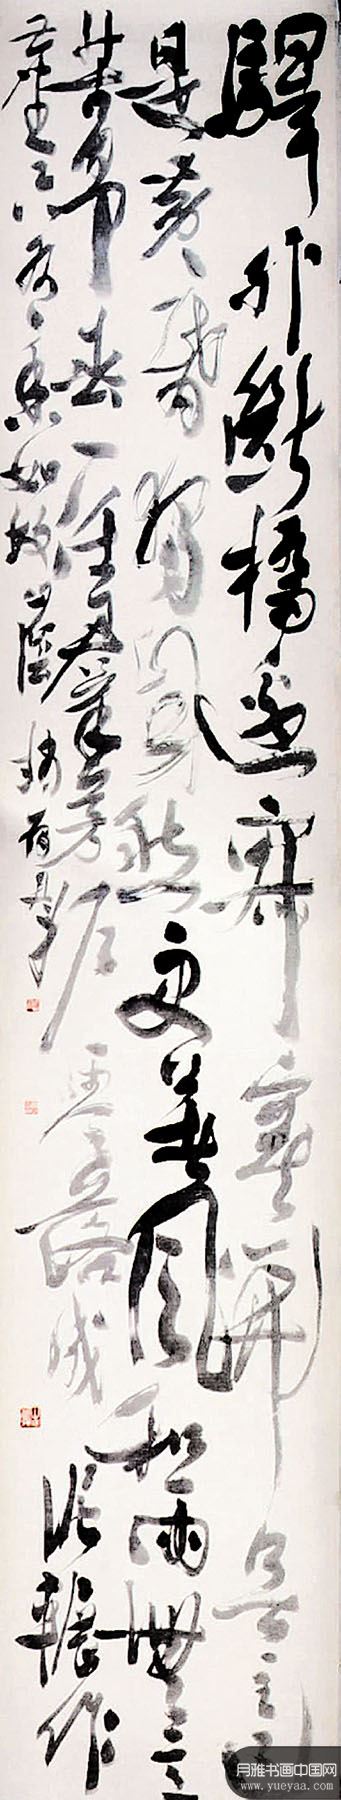 驛外斷橋邊寂寞開無主已
是黄昏獨自愁更著風和雨無意
苦争春一任羣芳妒零落成泥輾作
塵只有香如故
月雅书画中国网
www.yueyaa.com